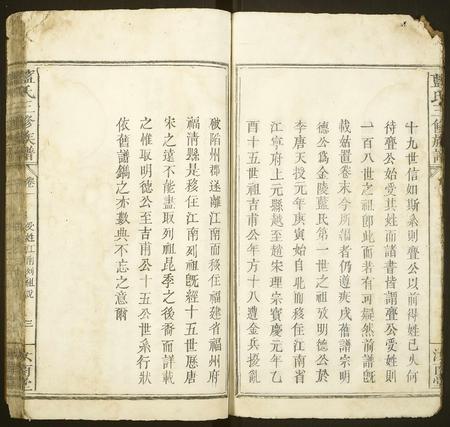 藍氏三修族譜
十九世信如斯系則賮公以前得姓已失何
待賮公始受其姓而諸書皆謂賮公受姓則
一百八世之祖卽此而若有可疑然前譜旣
載姑置卷末今所編者仍遵庚戌舊譜宗明
德公爲金陵藍氏第一世之祖攷明德公於
李唐天授元年庚寅始自北而移住江南省
江寧府上元縣越至趙宋理宗寶慶元年乙
酉十五世祖吉甫公年方十八遭金兵擾亂
破陷州郡遂離江南而移住福建省福州府
福清縣是移住江南列祖旣經十五世歷唐
宋之遠不能盡取列祖昆季之後裔而詳載
之惟取明德公至吉甫公十五公世系行狀
依舊譜錄之亦數典不忘之意爾
藍氏三修族譜
卷
受姓江南列祖說
三
汝南堂